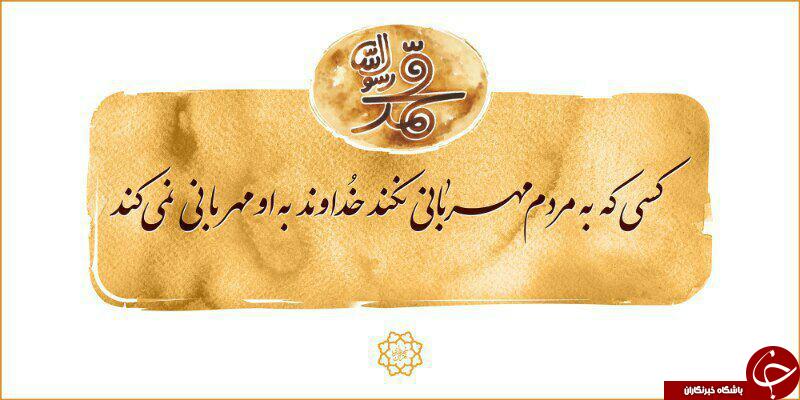 محمد رسول الله
کسی که به مردم مهربانی نکند خداوند به او مهربانی نمی‌کند
باشگاه خبرنگاران